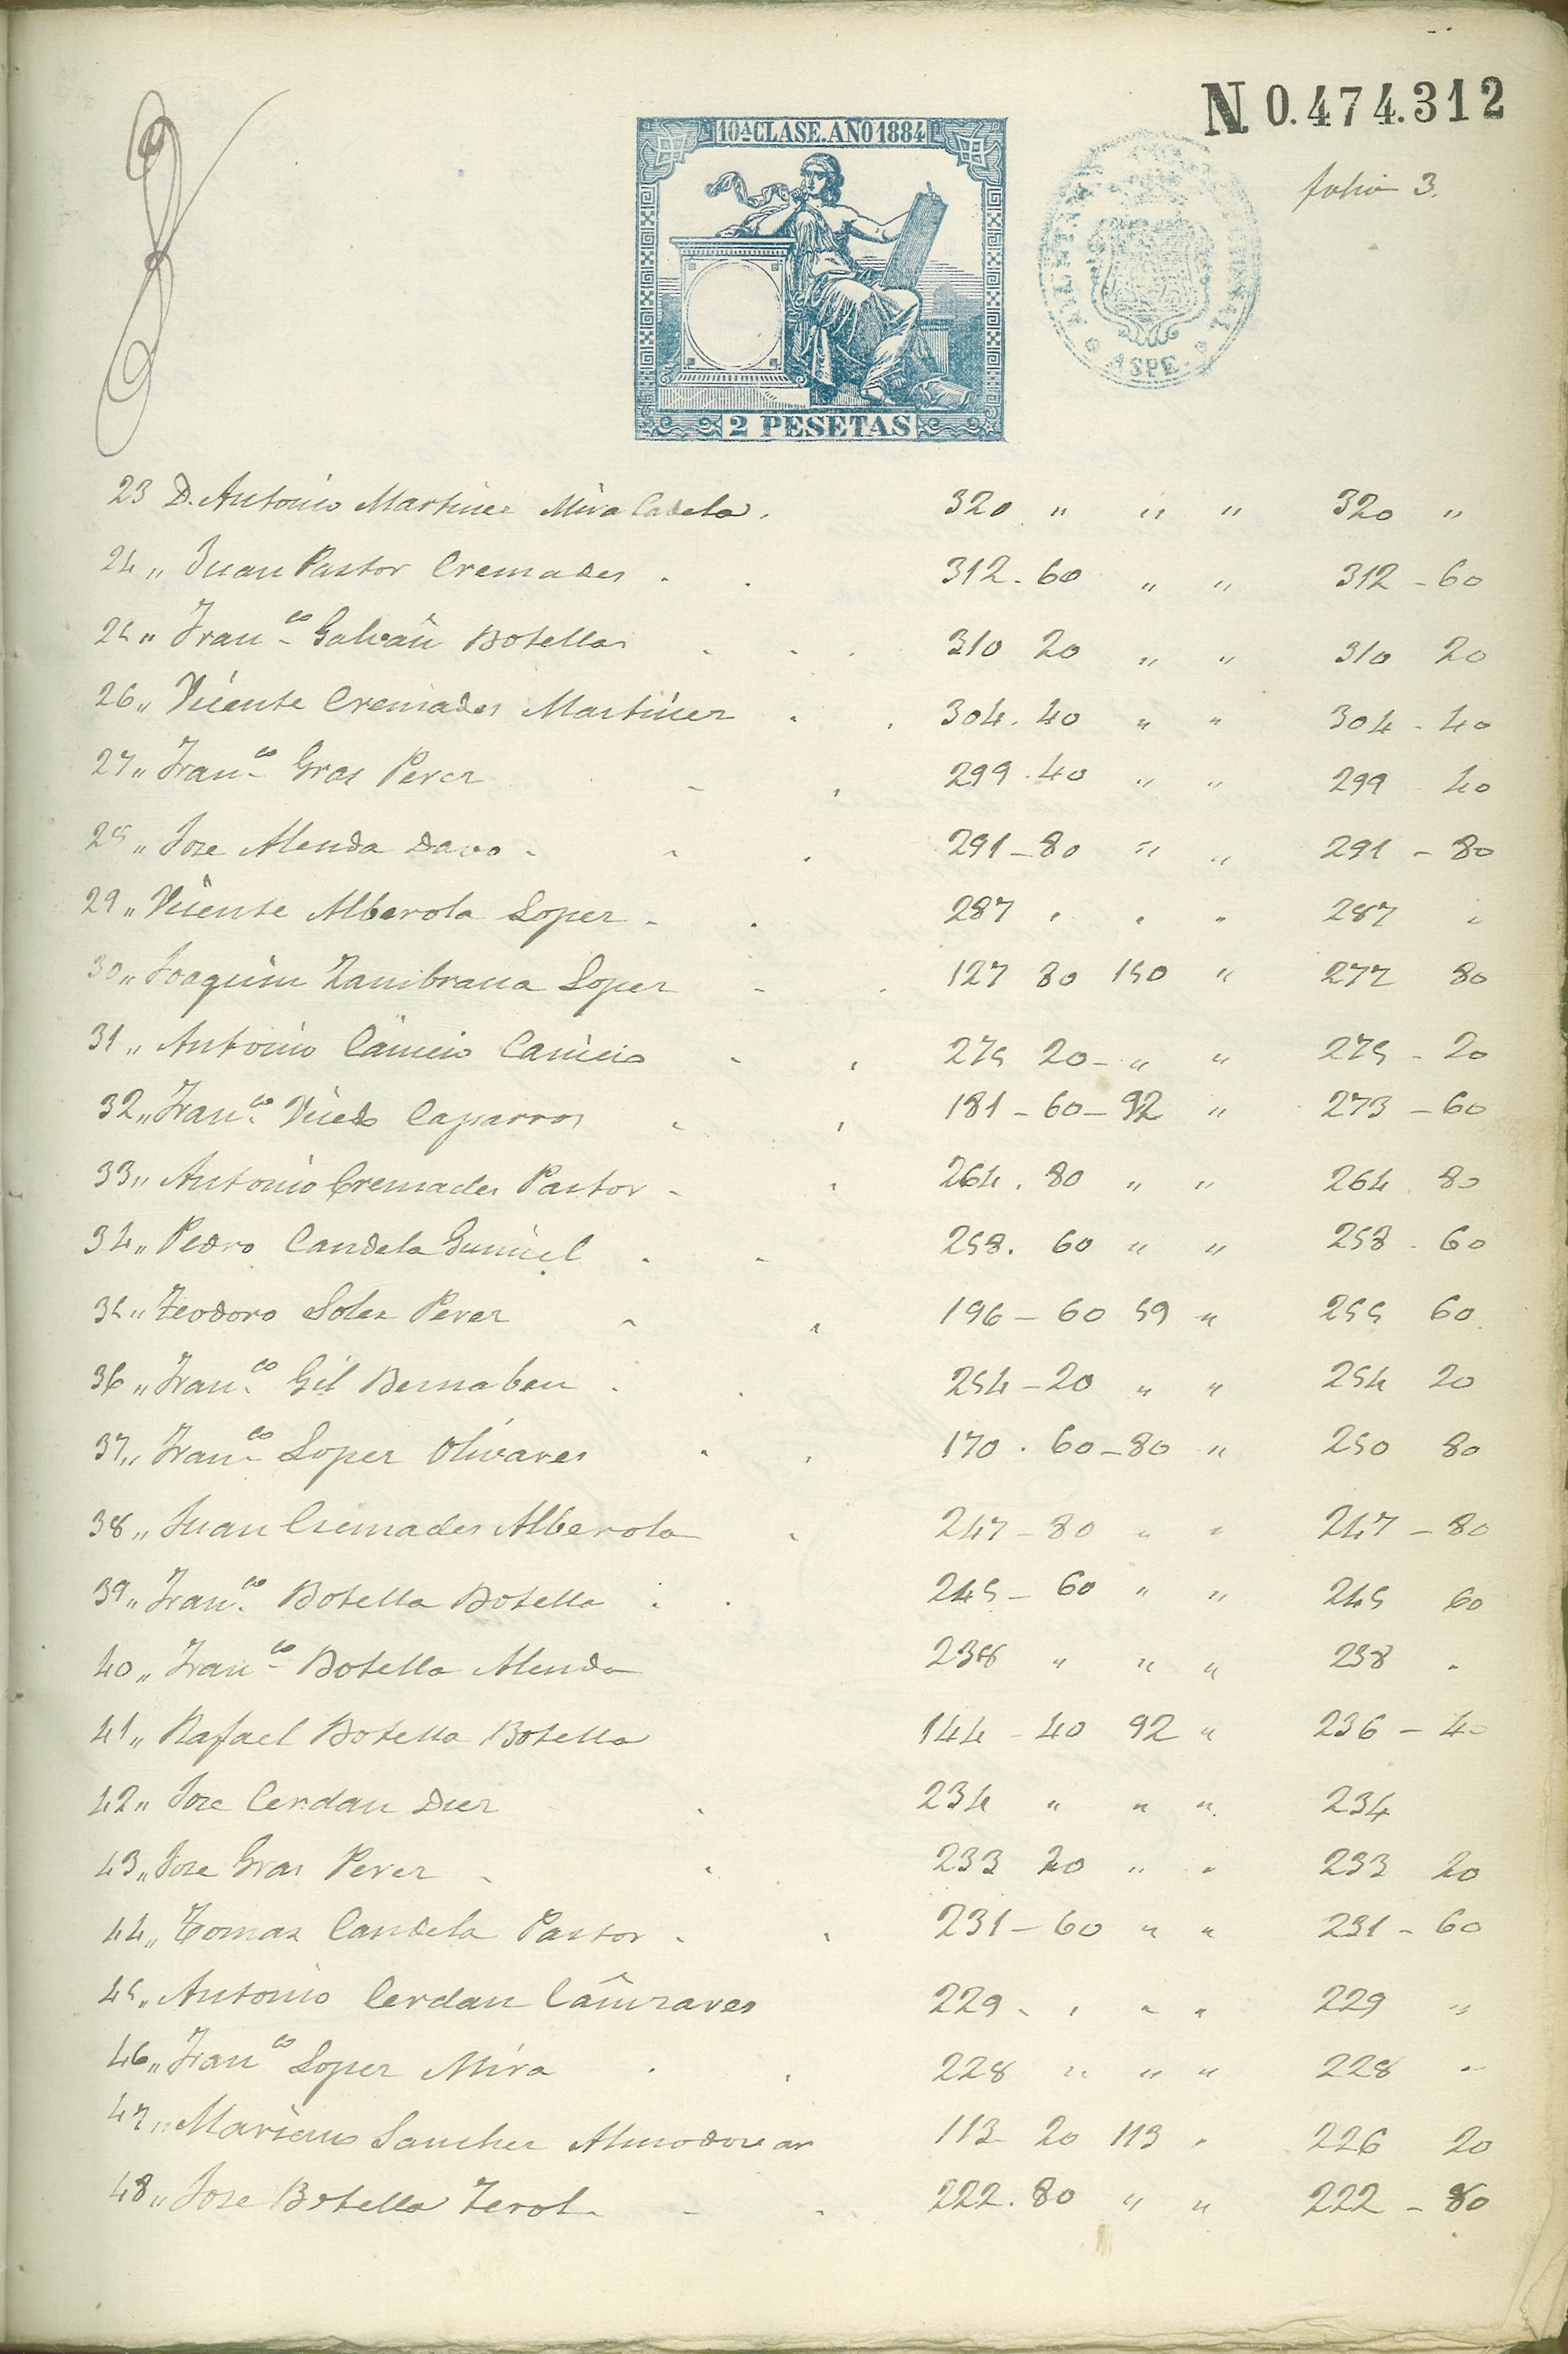 N. 0.474.312
10ª CLASE. AÑO 1884
folio 3.
ASPE
2 PESETAS
23 D. Antonio Martinez Mira 320 " " " 320 "
24 " Juan Pastor Cremades 312.60 " " 312-60
25 " Fran.co Galvañ Botella 310 20 " " 310 20
26 " Vicente Cremades Martinez 304.40 " " 304-40
27 " Fran.co Gras Perez 299.40 " " 299 40
28 " Jose Alenda Davo 291-80 " " 291-80
29 " Vicente Alberola Lopez 287 " " " 287 "
30 " Joaquin Zambrana Lopez 127 80 150 " 277 80
31 " Antonio Cañicio Cañicio 275 20 " " 275-20
32 " Fran.co Vicedo Caparros 181-60-92 " 273-60
33 " Antonio Cremades Pastor 264.80 " " 264 80
34 " Pedro Candela Gumiel 258.60 " " 258-60
35 " Teodoro Soler Perez 196-60 59 " 255 60
36 " Fran.co Gil Bernabeu 254-20 " " 254 20
37 " Fran.co Lopez Olivares 170.60-80 " 250 80
38 " Juan Cremades Alberola 247-80 " " 247-80
39 " Fran.co Botella Botella 245-60 " " 245 60
40 " Fran.co Botella Alenda 238 " " " 238 "
41 " Rafael Botella Botella 144-40 92 " 236-40
42 " Jose Cerdan Diez 234 " " " 234
43 " Jose Gras Perez 233 20 " " 233 20
44 " Tomas Candela Pastor 231-60 " " 231-60
45 " Antonio Cerdan Cañizares 229 " " " 229 "
46 " Fran.co Lopez Mira 228 " " " 228 "
47 " Mariano Sanchez Almodovar 113 20 113 " 226 20
48 " Jose Botella Terol 222.80 " " 222-80